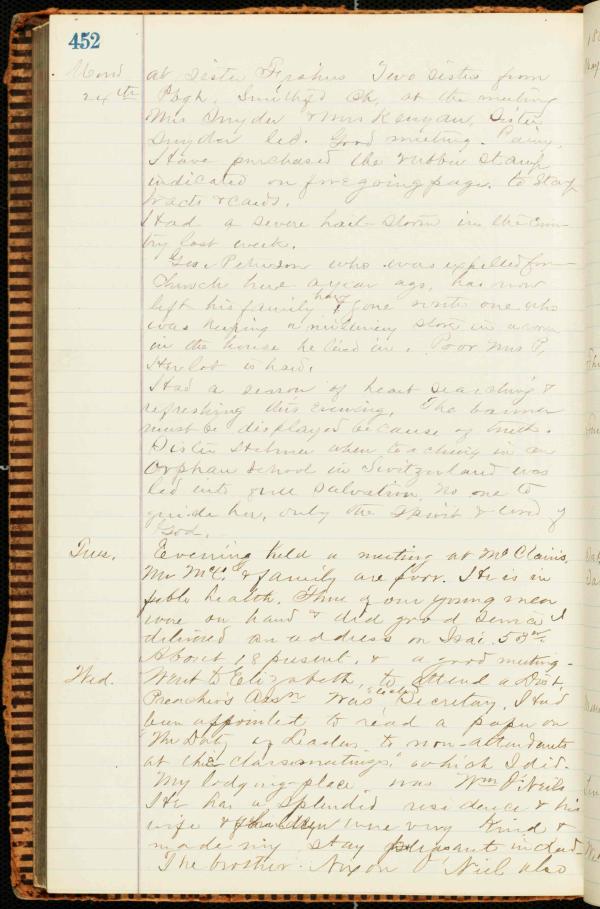 452
Mond at Sister Frshus Two sisters from
24th Pbgh. Smithf'd Ch. at the meeting
Mrs Snyder & Mrs Kenyan, Sister
Snyder led. Good meeting. Rainy.
Have purchased the rubber stamp
indicated on foregoing page. to Stamp
tracts & cards.
Had a severe hail-storm in the coun-
try last week.
Geo. Peterson who was expelled from
Church here a year ago, has now
left his family & has gone with one who
was keeping a millinery store in a room
in the house he lived in. Poor Mrs P.
Her lot is hard.
Had a season of heart searching &
refreshing this evening. The banner
must be displayed because of truth.
Sister Stehmer when teaching in an
Orphan School in Switzerland was
led into full Salvation. No one to
guide her, only the Spirit & word of
God.
Tues. Evening held a meeting at McClains.
Mr McC. & family are poor. He is in
feble health. Three of our young men
were on hand & did good service I
delivered an address on Isai. 53rd.
About 18 present, & a good meeting.
Wed. Went to Elizabeth, to attend a Dist.
Preacher's Assn Was elected Secretary. I Had
been appointed to read a paper on
"The Duty of Leaders to non-attendants
at the Classmeetings," which I did.
My lodging-place was Wm O'Neils
He has a splendid residence & his
wife & children were very kind &
made my stay pleasant indeed.
The brother Nixon O'Niel also